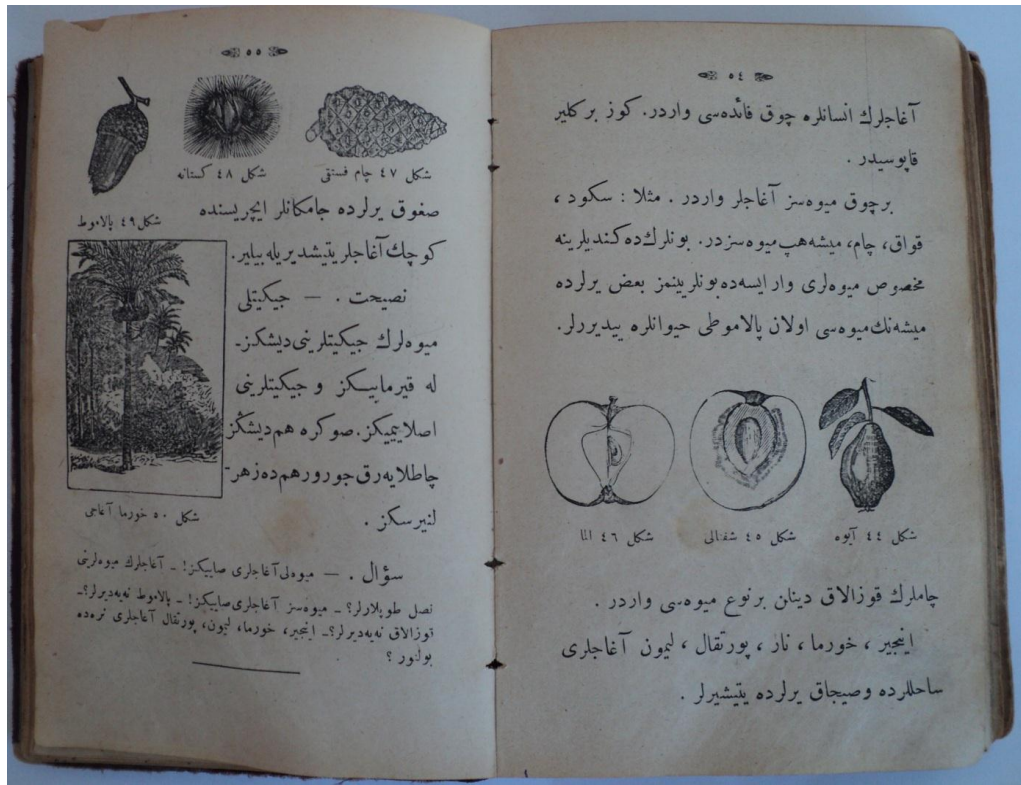 ٥٤
آغاجلرك انسانلره چوق فائده‌سى واردر. كوز بر كلير
قاپوسيدر .
بر چوق ميوه‌سز آغاجلر واردر . مثلا : سكود ،
قواق ، چام، ميشه هپ ميوه‌سزدر. بونلرك ده كنديلرينه
مخصوص ميوه‌لرى وار ايسه‌ده بونلر يينمز بعض يرلرده
ميشه‌نك ميوه‌سى اولان پالاموطى حيوانلره ييديررلر.
شكل ٤٤ آيوه
شكل ٤٥ شفتالى
شكل ٤٦ الما
چاملرك قوزالاق دينلن بر نوع ميوه‌سى واردر .
اينجير ، خورما ، نار ، پورتقال ، ليمون آغاجلرى
ساحللرده و صيجاق يرلرده يتيشيرلر .
٥٥
شكل ٤٧ چام فستقى
شكل ٤٨ كستانه
شكل ٤٩ پالاموط
صغوق يرلرده جامكانلر ايچريسنده
كوچك آغاجلر يتيشديريله بيلير.
نصيحت . — چيكيتلى
ميوه‌لرك چيكيتلرينى ديشكز-
له قيرماييكز و چيكيتلرينى
اصلا ييميكز. صوكره هم ديشكز
چاطلايه‌رق چورور هم ده زهر-
لنيرسكز .
شكل ٥٠ خورما آغاجى
سؤال . — ميوه‌لى آغاجلرى صاييكز! - آغاجلرك ميوه‌لرينى
نصل طوپلارلر؟ - ميوه‌سز آغاجلرى صاييكز! - پالاموط نه‌يه ديرلر؟ -
قوزالاق نه‌يه ديرلر؟ - اينجير، خورما، ليمون، پورتقال آغاجلرى نره‌ده
بولنور ؟